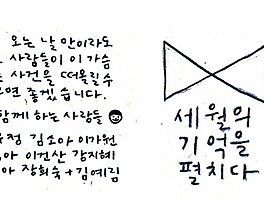 오는 날 만이라도
사람들이 이 가슴
사건을 떠올릴 수
면 좋겠습니다.
함께 하는 사람들
정 김소아 이가원
아 이건산 강지혜
아 장희숙 + 김예림
세월의
기억을
펼치다